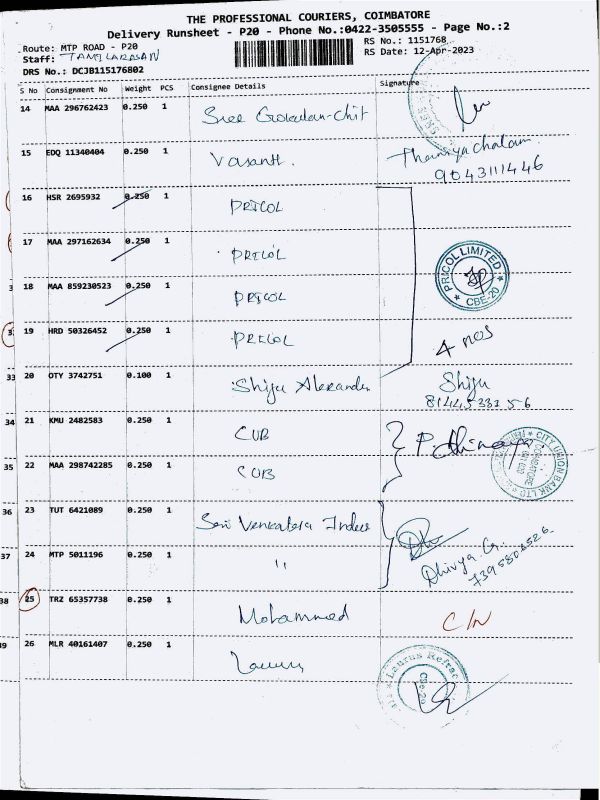 THE PROFESSIONAL COURIERS, COIMBATORE
Delivery Runsheet - P20 - Phone No.:0422-3505555 - Page No.:2
Route: MTP ROAD - P20
RS No.: 1151768
Staff: TAMILARASAN
RS Date: 12-Apr-2023
DRS No.: DCJB115176802
S No Consignment No Weight PCS Consignee Details Signature
14 MAA 296762423 0.250 1 Sree Chit
15 EDQ 11340404 0.250 1 Vasanth. Thaniyachalam
9043111446
16 HSR 2695932 0.250 1 PRICOL
17 MAA 297162634 0.250 1 PRICOL
PRICOL LIMITED
CBE-20
18 MAA 859230523 0.250 1 PRICOL
19 HRD 50326452 0.250 1 PRICOL 4 nos
33 20 OTY 3742751 0.100 1 Shiju Alexander Shiju
34 21 KMU 2482583 0.250 1 CUB
CITY UNION BANK LTD
35 22 MAA 298742285 0.250 1 CUB
36 23 TUT 6421089 0.250 1 Sri Venkatesa
37 24 MTP 5011196 0.250 1 "
Dhivya.G.
38 25 TRZ 65357738 0.250 1 Mohammed C/N
39 26 MLR 40161407 0.250 1
Laurus Refrac
CBE-20